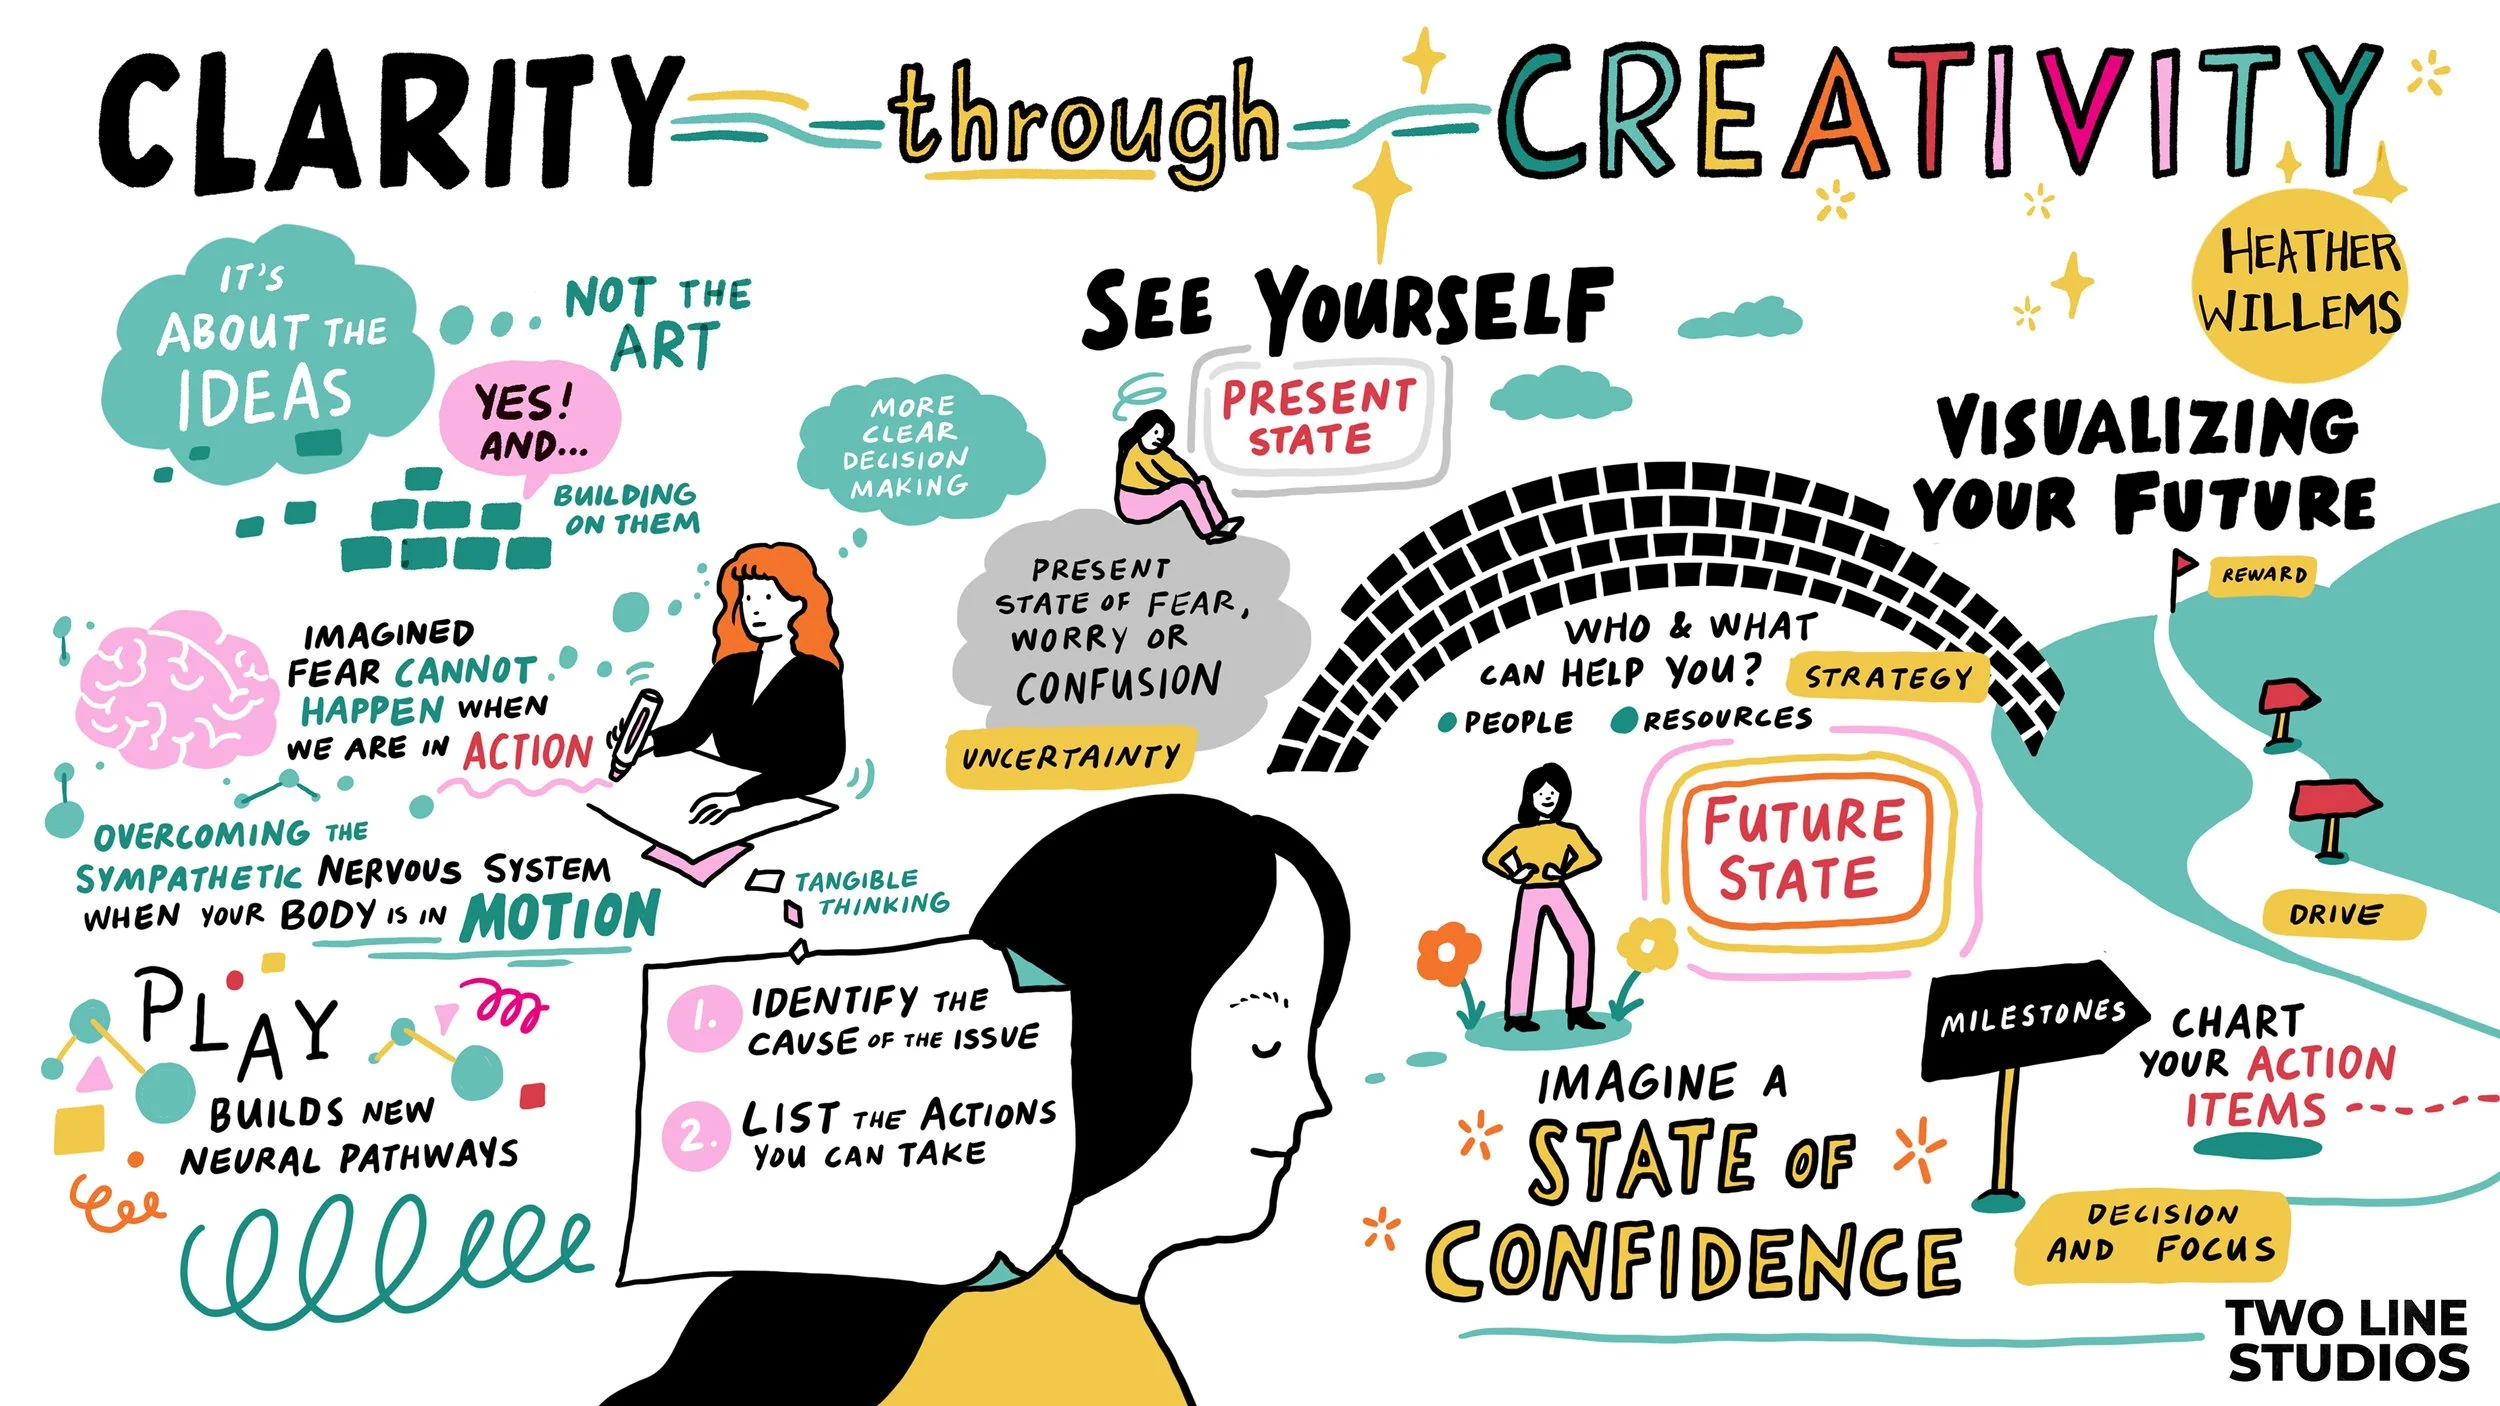 CLARITY through CREATIVITY
HEATHER
WILLEMS
IT'S
ABOUT THE
IDEAS
NOT THE
ART
YES!
AND...
BUILDING
ON THEM
MORE
CLEAR
DECISION
MAKING
IMAGINED
FEAR CANNOT
HAPPEN WHEN
WE ARE IN ACTION
OVERCOMING THE
SYMPATHETIC NERVOUS SYSTEM
WHEN YOUR BODY IS IN MOTION
TANGIBLE
THINKING
PLAY
BUILDS NEW
NEURAL PATHWAYS
1. IDENTIFY THE
CAUSE OF THE ISSUE
2. LIST THE ACTIONS
YOU CAN TAKE
SEE YOURSELF
PRESENT
STATE
PRESENT
STATE OF FEAR,
WORRY OR
CONFUSION
UNCERTAINTY
WHO & WHAT
CAN HELP YOU?
STRATEGY
PEOPLE
RESOURCES
FUTURE
STATE
IMAGINE A
STATE OF
CONFIDENCE
VISUALIZING
YOUR FUTURE
REWARD
DRIVE
MILESTONES
CHART
YOUR ACTION
ITEMS
DECISION
AND FOCUS
TWO LINE
STUDIOS